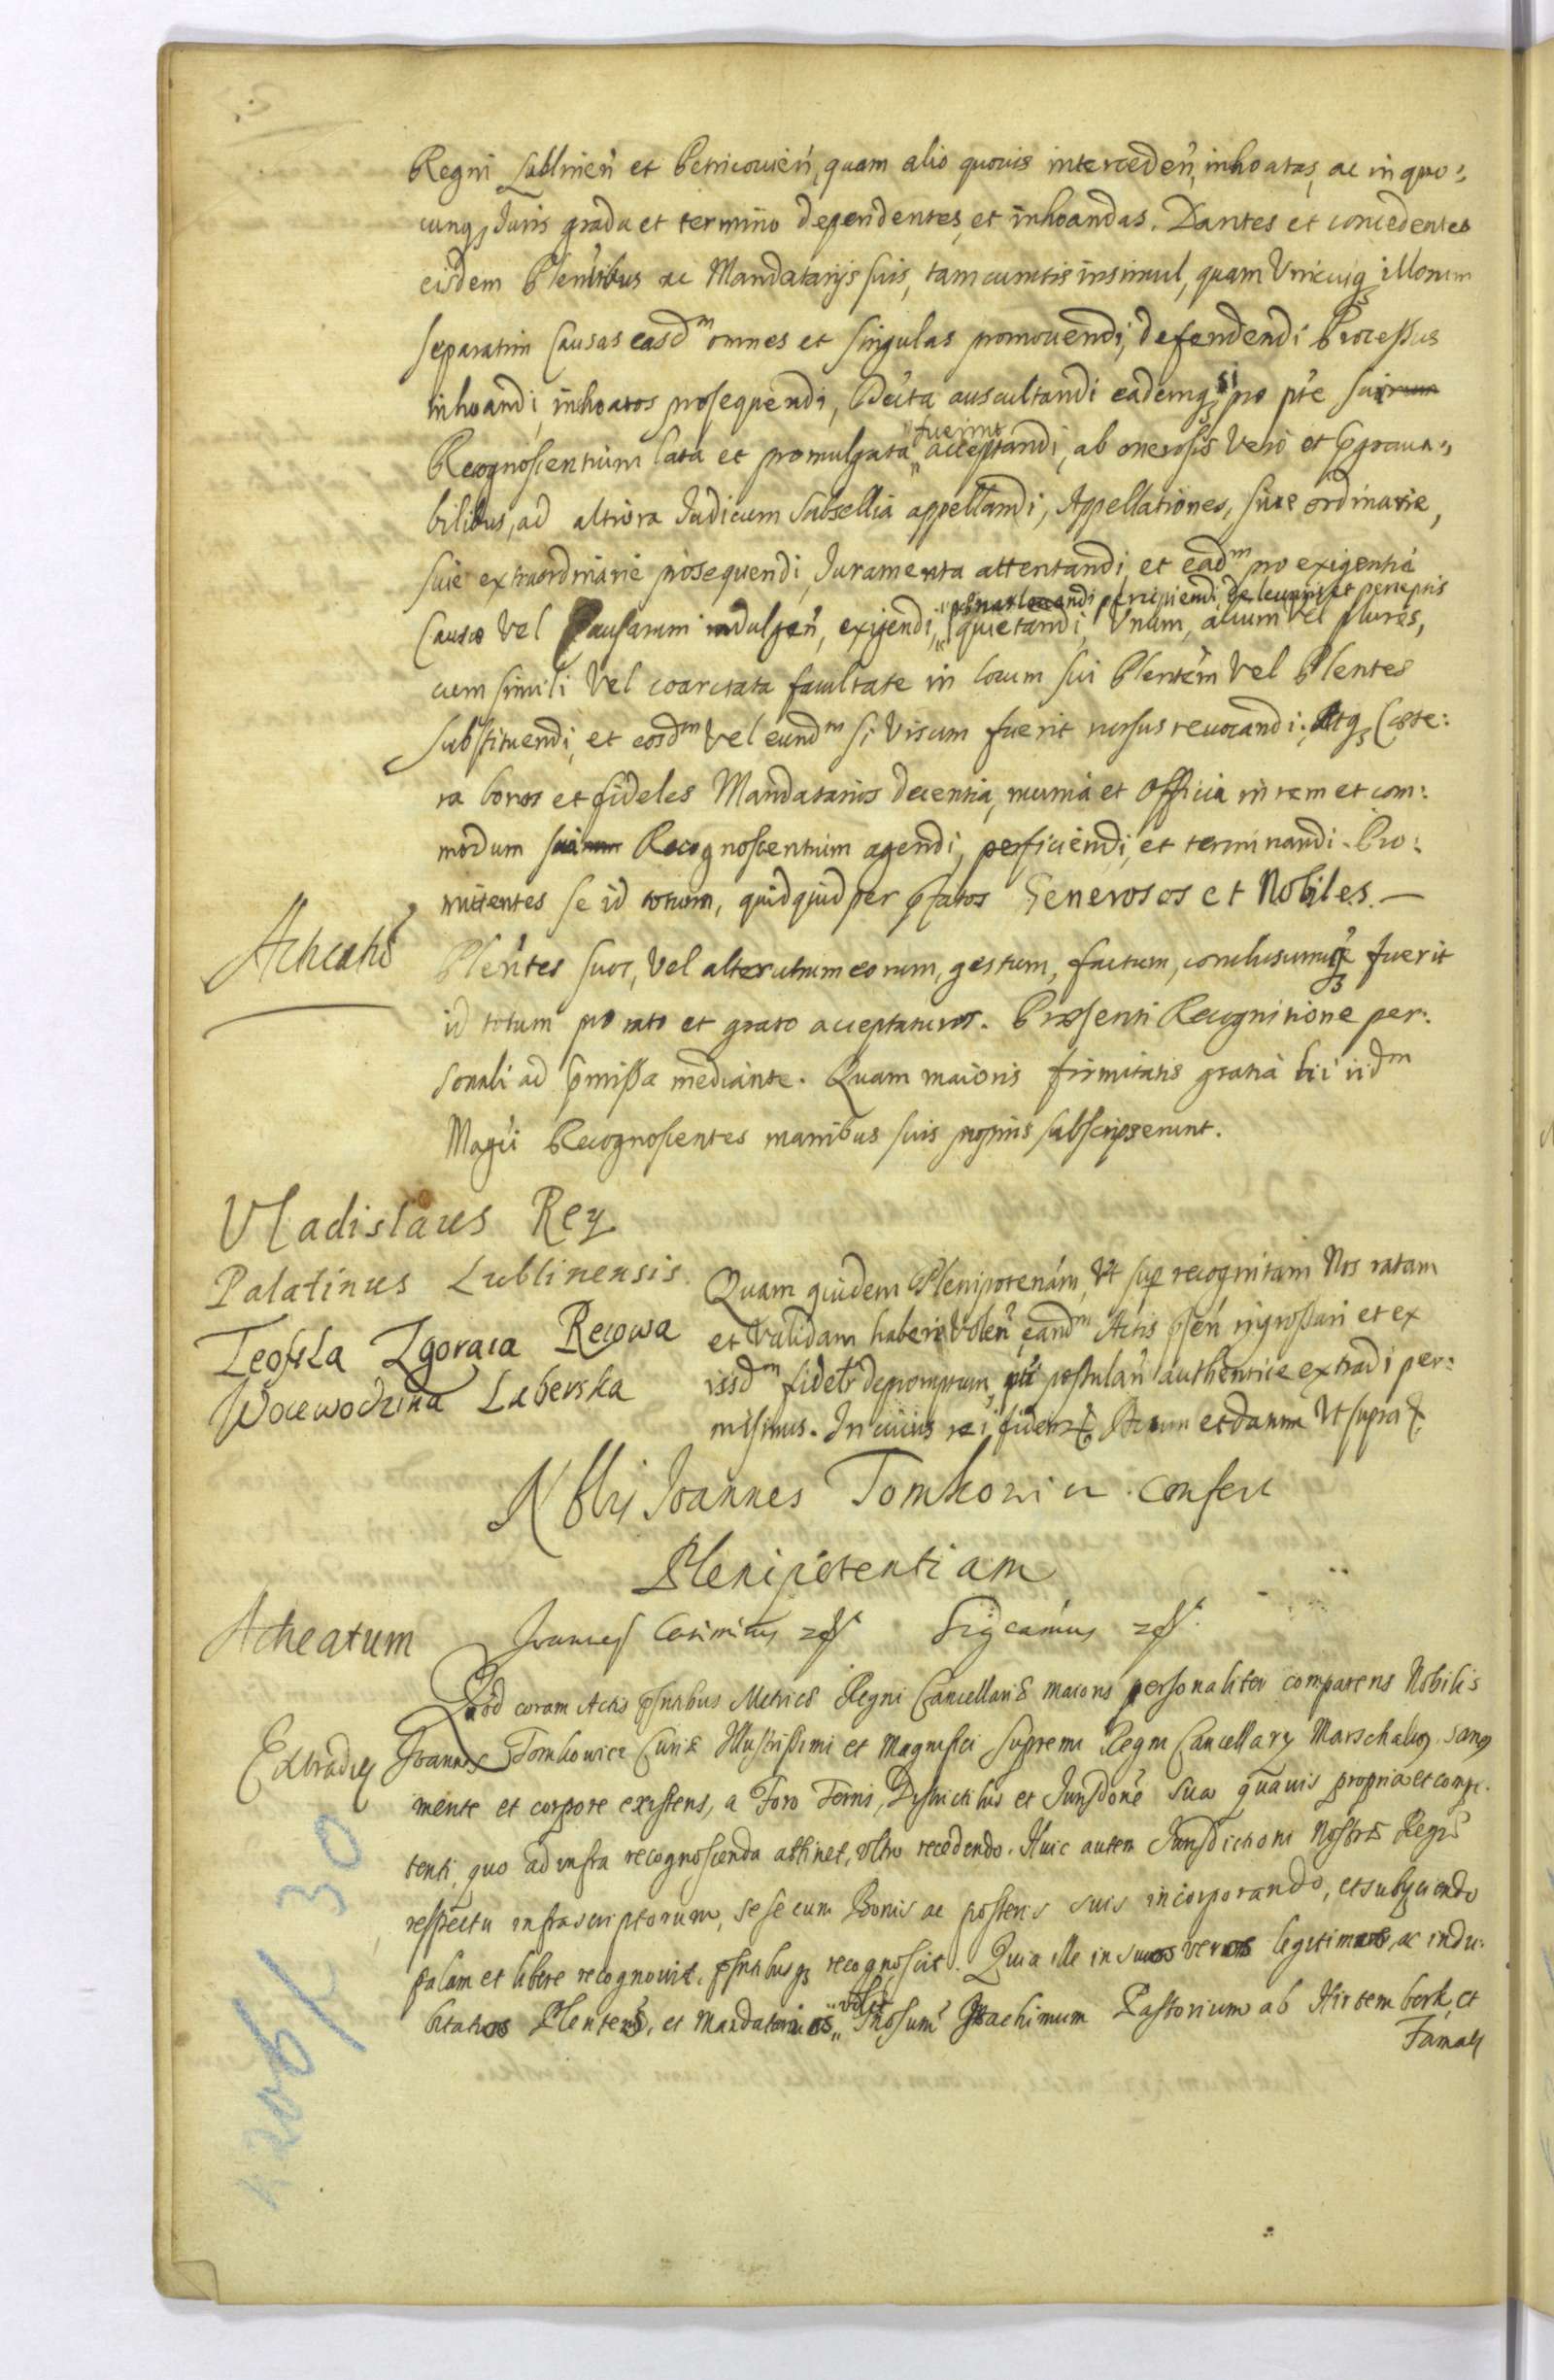 Regni Lublinen̄ et Petricovien̄, quam alio quovis interceden̄, inhoatas, ac in quo:
cunq₃ Juris gradu et termino dependentes, et inhoandas. Dantes et concedentes
eisdem Plen̄tibus ac Mandatarijs suis, tam cunctis insimul, quam Unicuiq₃ illorum
separatim Causas easdᵐ omnes et singulas promovendi, defendendi Processus
inhoandi, inhoatos prosequendi, Decr̄ta auscultandi eademq₃ si pro pt̄e suorum
Recognoscentium lata et promulgata fuerint acceptandi, ab onerosis Vero et p̱grava:
bilibus, ad altiora Judicum Subsellia appellandi, Appellationes, sive ordinarie,
sive extraordinarie prosequendi, Juramenta attentandi, et eadᵐ pro exigentia
percipiendi, de levatis et perceptis
Causæ Vel Causarum indulgen̄, exigendi, quietandi, Unum, alium vel plures,
cum simili Vel coarctata facultate in locum sui Plentēm Vel Plentes
substituendi, et eosdᵐ Vel eundᵐ si Visum fuerit rursus revocandi. Atq₃ Cæte:
ra bonos et fideles Mandatarios decentia, munia et Officia in rem et com:
modum suorum Recognoscentium agendi, perficiendi, et terminandi. Pro:
mittentes se id totum, quidquid per p̱fatos Generosos et Nobiles. —
Acticatū
Plen̄tes suos, Vel alterutrum eorum, gestum, factum, conclusumq₃ fuerit
id totum pro rato et grato acceptaturos. Præsenti Recognitione per:
sonali ad p̱missa mediante. Quam maioris firmitatis gratia hi iidᵐ
Magci Recognoscentes manibus suis proprijs subscripserunt.
Vladislaus Rey
Palatinus Lublinensis.
Teofila Zgoraia Reiowa
Woiewodzina Lubelska
Quam quidem Plenipoten̄am, Ut sup̱ recognitam Nos ratam
et Validam habere Volen̄, eandᵐ Actis p̱sen̄ ingrossari et ex
iisdᵐ fidelr̄ depromptum, pti postulan̄ authentice extradi per:
misimus. In cuius rei fidem Actum et datum Ut supra
Nblis Joannes Tomkowicz confert
Plenipotentiam
Acticatum
Quod coram Actis p̱sntibus Metricæ Regni Cancellariæ maioris personaliter comparens Nobilis
Extradit
Joannes Tomkowicz Curiæ Illustrissimi et Magnifici Supremi Regni Cancellarij Marschalcus, sanus
mente et corpore existens, a Foro Terris, Districtibus et Jurisdone sua quavis propria et compe:
tenti, quo ad infra recognoscenda attinet, ultro recedendo. Huic autem Jurisdictioni Nostræ Regiæ
respectu infrascriptorum, sese cum Bonis ac posteris suis incorporando, et subijciendo
palam et libere recognovit, p̱sntibusq₃ recognoscit. Quia ille in suos veros legitimos, ac indu:
bitatos Plentes, et Mandatarios, Joachimum Pastorium ab Hirtemberk, et
Famatū
4206/30